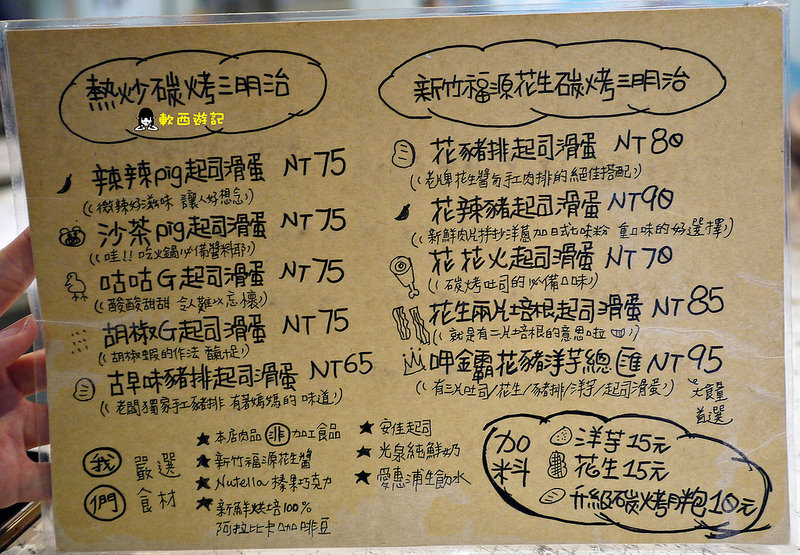 熱炒碳烤三明治
軟西遊記
辣辣pig起司滑蛋 NT75
((微辣好滋味 讓人好想念))
沙茶pig起司滑蛋 NT75
((哇!! 吃火鍋必備醬料耶))
咕咕G起司滑蛋 NT75
((酸酸甜甜 令人難以忘懷))
胡椒G起司滑蛋 NT75
((胡椒蝦的作法 鹹汁足))
古早味豬排起司滑蛋 NT65
((老闆獨家手工豬排 有著媽媽的味道))
新竹福源花生碳烤三明治
花豬排起司滑蛋 NT80
((老牌花生醬与手工肉排的絕佳搭配))
花辣豬起司滑蛋 NT90
((新鮮肉片拌抄洋蔥加日式七味粉 重口味的好選擇))
花花火起司滑蛋 NT70
((碳烤吐司的必備口味))
花生兩片培根起司滑蛋 NT85
((就是有二片培根的意思啦))
呷金霸花豬洋芋總匯 NT95
((有三片吐司/花生/豬排/洋芋/起司滑蛋)) 大食量
首選
我們
嚴選
食材
★本店肉品非加工食品
★新竹福源花生醬
★Nutella 榛果巧克力
★新鮮烘培100%
阿拉比卡咖啡豆
★安佳起司
★光泉純鮮奶
★愛惠浦生飲水
加料
洋芋15元
花生15元
升級碳烤胖包10元